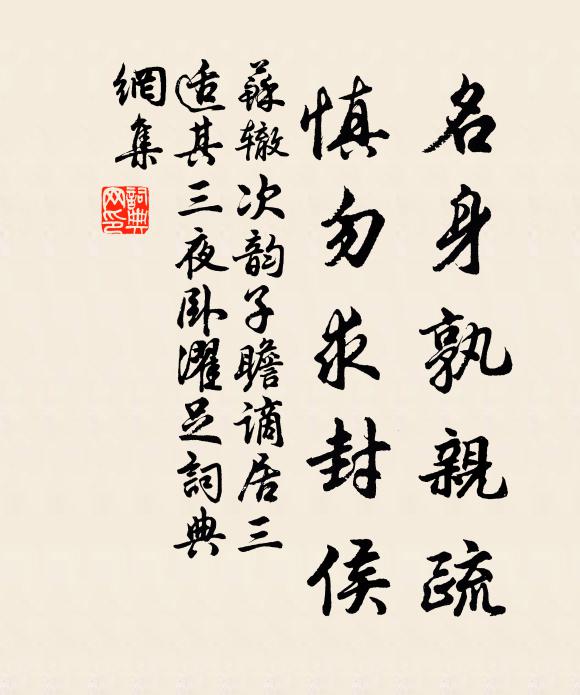 名身孰親疏
慎勿求封侯
蘇辙次韵子瞻謫居三
适其三夜卧濯足詞典
網集
詞典
网印